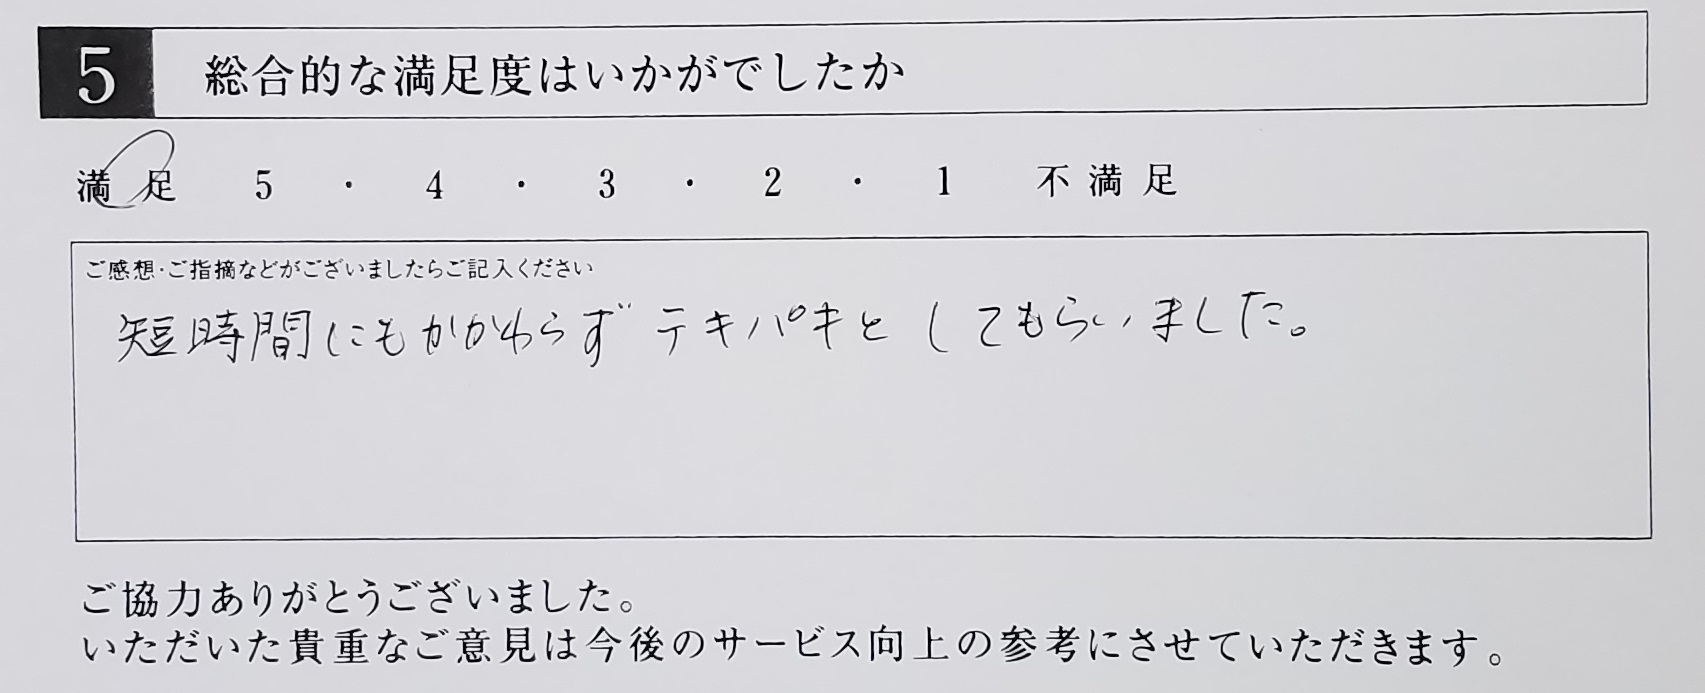 5 総合的な満足度はいかがでしたか
満足 5 ・ 4 ・ 3 ・ 2 ・ 1 不満足
ご感想・ご指摘などがございましたらご記入ください
短時間にもかかわらず テキパキと してもらいました。
ご協力ありがとうございました。
いただいた貴重なご意見は今後のサービス向上の参考にさせていただきます。